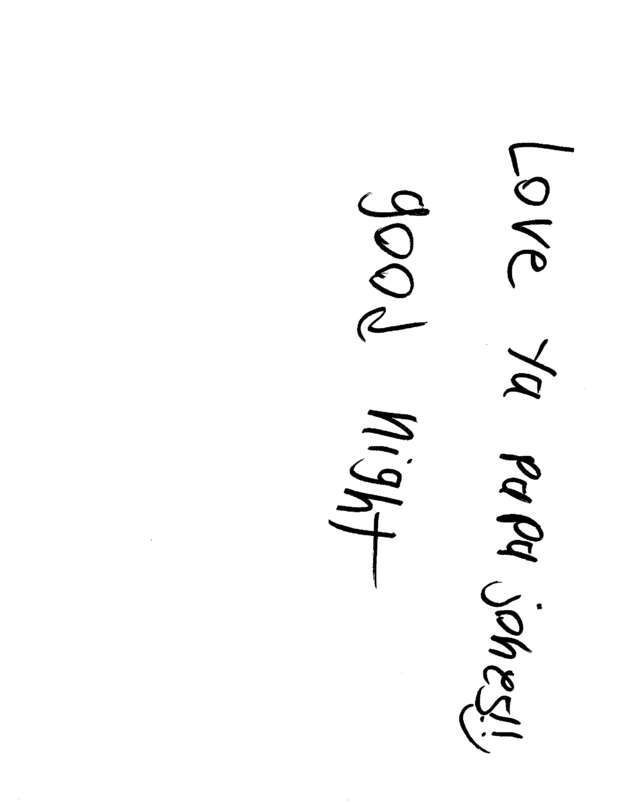 Love ya papa johes!! :)
good night